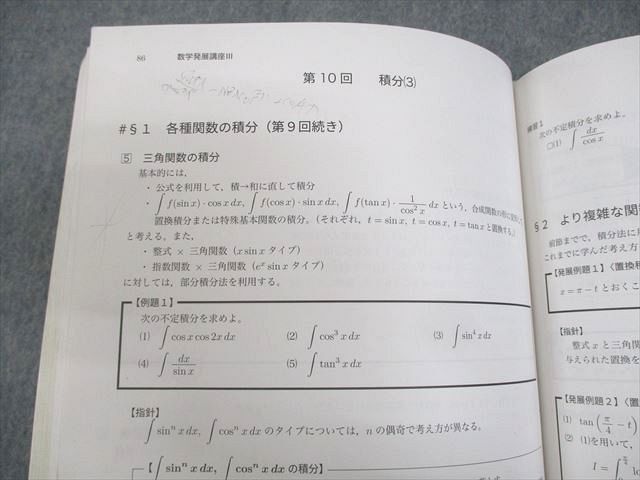 86 数学発展講座Ⅲ
第10回 積分⑶
#§1 各種関数の積分（第9回続き）
5 三角関数の積分
基本的には，
・公式を利用して，積→和に直して積分
・∫f(sin x)・cos x dx, ∫f(cos x)・sin x dx, ∫f(tan x)・1/cos² x dx という，合成関数の形に
置換積分または特殊基本関数の積分。（それぞれ，t = sin x, t = cos x, t = tan x と置換する。）
と考える。また，
・整式 × 三角関数（x sin x タイプ）
・指数関数 × 三角関数（eˣ sin x タイプ）
に対しては，部分積分法を利用する。
【例題1】
次の不定積分を求めよ。
⑴ ∫cos x cos 2x dx ⑵ ∫cos³ x dx ⑶ ∫sin⁴ x dx
⑷ ∫dx/sin x ⑸ ∫tan³ x dx
【指針】
∫sinⁿ x dx, ∫cosⁿ x dx のタイプについては，n の偶奇で考え方が異なる。
【∫sinⁿ x dx, ∫cosⁿ x dx の積分】
練習1
次の不定積分を求めよ。
○⑴ ∫dx/cos x
§2 より複雑な関
前節までで，積分法に
これまでに学んだ考え方
【発展例題1】〈置換
x = π − t とおくこ
【指針】
整式 x と三角関
与えられた置換を
【発展例題2】〈置
⑴ tan(π/4 − t)
⑵ ⑴を用いて，
I = ∫